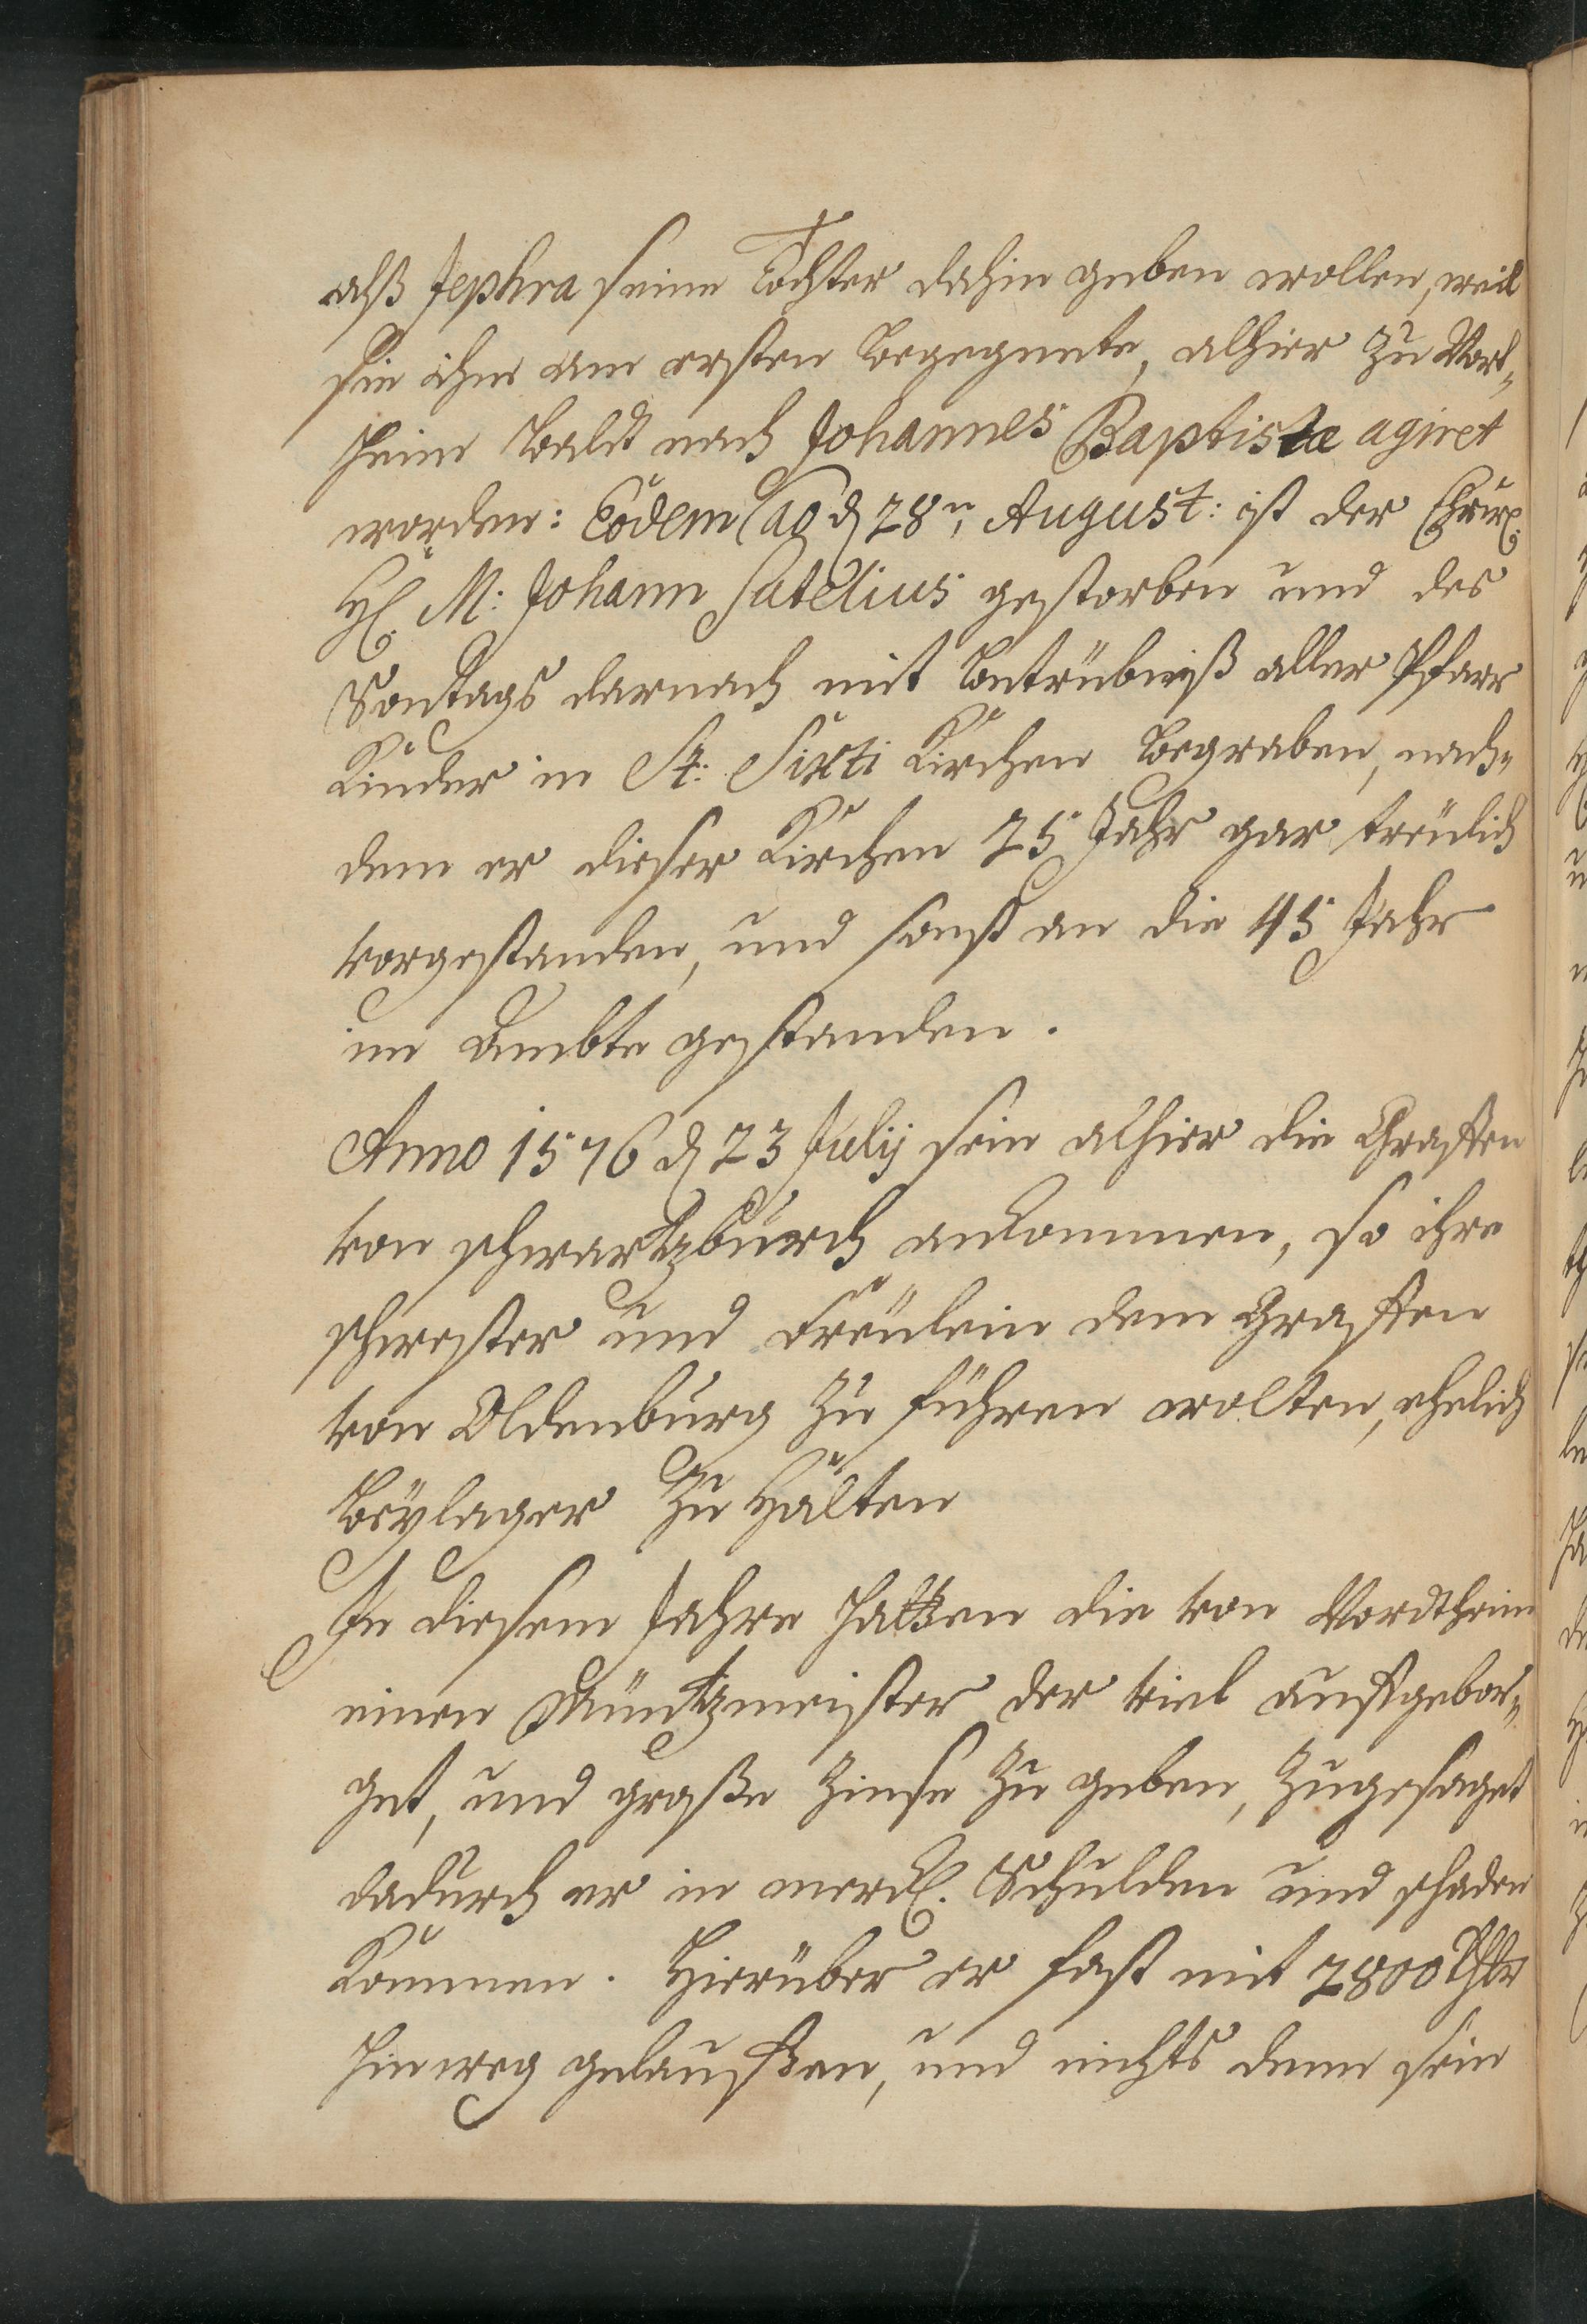 alß Jephra seine Töchter dahin geben wollen, weil
sie ihm am ersten begegnete, alhier zu Nort„
heim baldt nach Johannes Baptistæ agiret
worden: Eodem ao d 28n August: ist der Ehrw.
H. M: Johann Sutelius gestorben und des
Sontags darnach mit betrübniß aller Pfarr
Kinder in St: Sixti Kirchen begraben, nach„
dem er dieser Kirchen 25 Jahr gar treülich
vorgestanden, und sonst an die 45 Jahr
im Ambte gestanden.
Anno 1576 d 23 Julij sein alhier die Graffen
von schwartzburch ankommen, so ihre
schwester und Freülein dem Graffen
von Oldenburg zu führen wolten, ehelich
beÿlager zu halten
In diesem Jahre hatten die von Nordtheim
einen Müntzmeister der viel auffgebor„
get, und große Zinse zu geben, zugesaget
dadurch er in merckl. Schulden und schaden
kommen. Hierüber er fast mit 2800 Thlr
hinweg gelauffen, und nichts denn sein